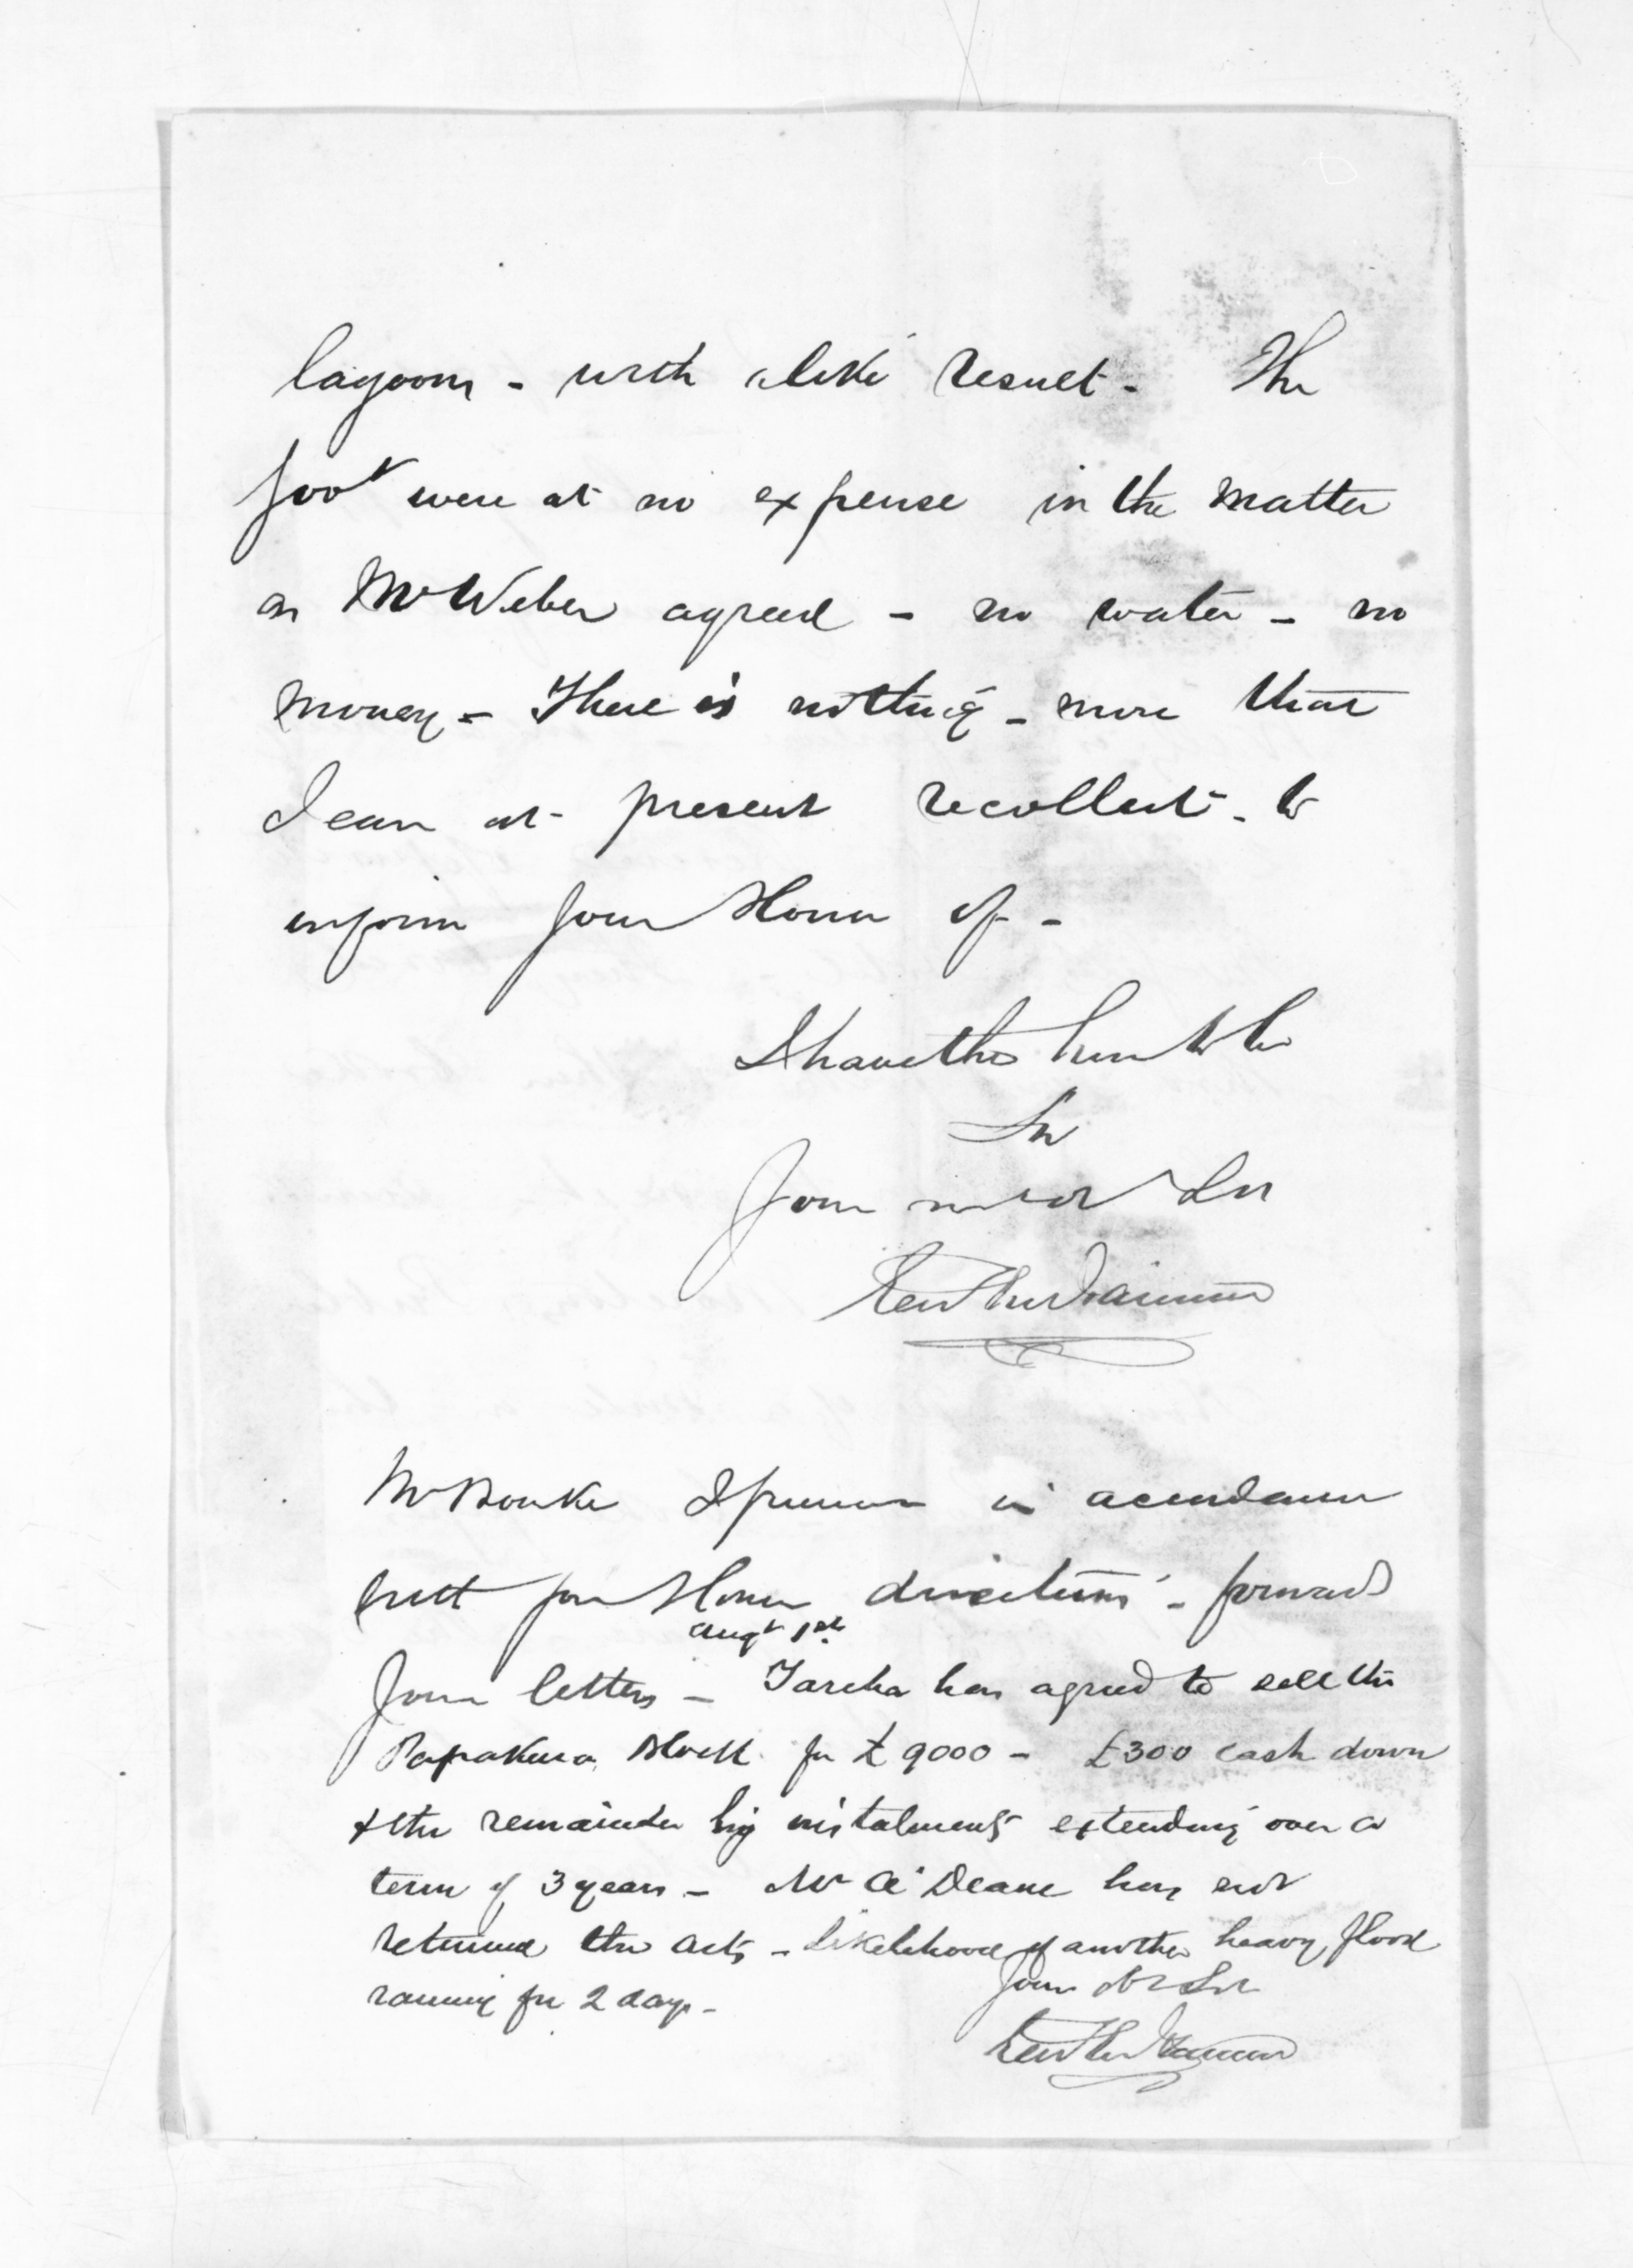 lagoons - with a like result - The
Govt were at no expense in the matter
as Mr Weber agreed - no water - no
money - There is nothing - more that
I can at present recollect - to
inform Your Honor of -
I have the honor to be
Sir
Your most obt Svt
Mr Bourke I presume in accordance
with your Honor directions - forwards
Augt 1st
Your letters - Tareha has agreed to sell the
Papakura Block for £9000 - £300 cash down
& the remainder by instalments extending over a
term of 3 years - Mr Deane has not
returned the acts - likelihood of another heavy flood
raining for 2 days -
Your Svt